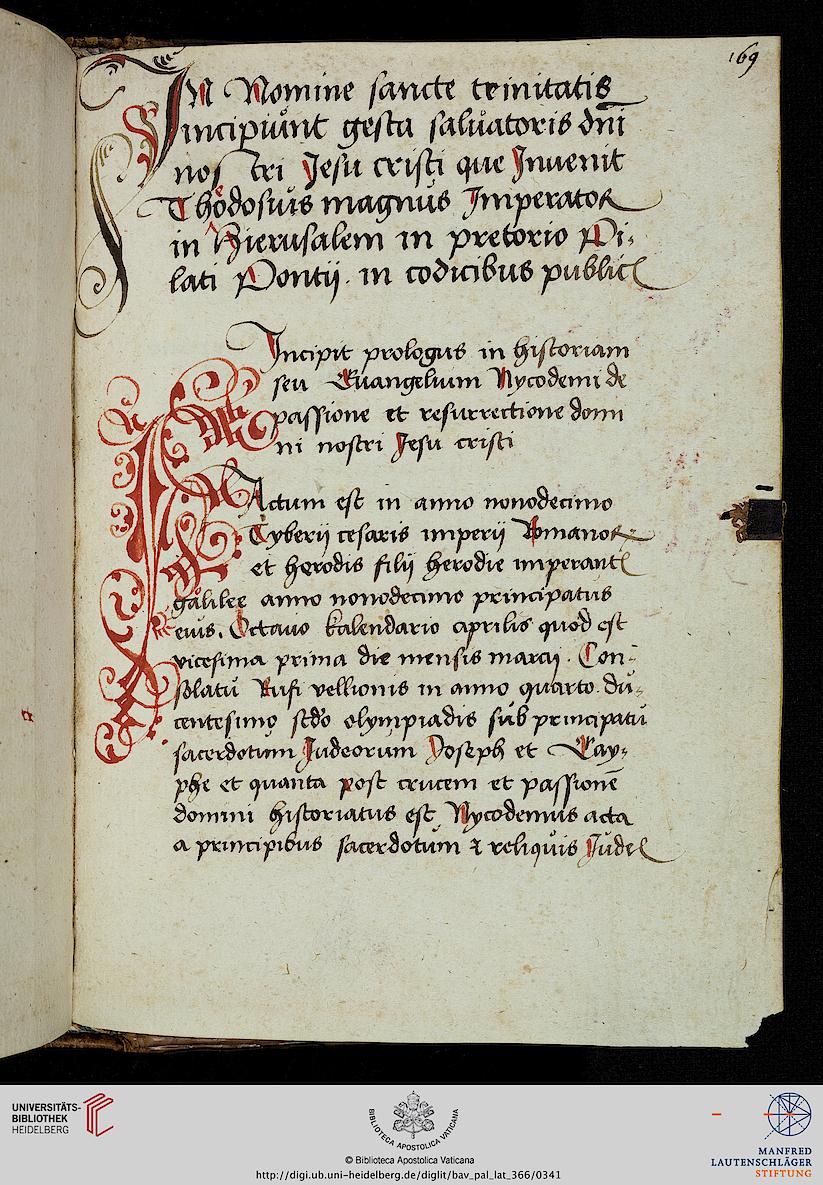 169
IN Nomine sancte trinitatis
incipiunt gesta saluatoris dnī
nostri Jesu cristi que Inuenit
Theodosius magnus Imperator
in Hierusalem in pretorio Pi-
lati Pontij. in codicibus public
Incipit prologus in historiam
seu Euangelium Nycodemi de
passione et resurrectione domi
ni nostri Jesu cristi
FActum est in anno nonodecimo
Tyberij cesaris imperij Romanor
et herodis filij herodie imperant
galilee anno nonodecimo principatus
eius. Octauo kalendario aprilis quod est
vicesima prima die mensis marcij. Con-
solatū Rufi vellionis in anno quarto. du-
centesimo scdo olympiadis sub principatu
sacerdotum Judeorum Joseph et Cay-
phe et quanta post crucem et passionē
domini historiatus est Nycodemus acta
a principibus sacerdotum et reliquis Jude
UNIVERSITÄTS-
BIBLIOTHEK
HEIDELBERG
BIBLIOTECA APOSTOLICA VATICANA
© Biblioteca Apostolica Vaticana
http://digi.ub.uni-heidelberg.de/diglit/bav_pal_lat_366/0341
MANFRED
LAUTENSCHLÄGER
STIFTUNG